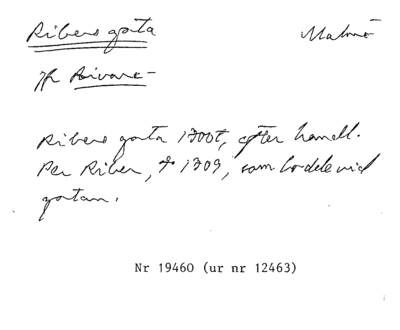 Ribers gata Malmö
Jfr Rivare-
Ribers gata 1700t, efter handl.
Per Riber, † 1709, som bodde vid
gatan.
Nr 19460 (ur nr 12463)